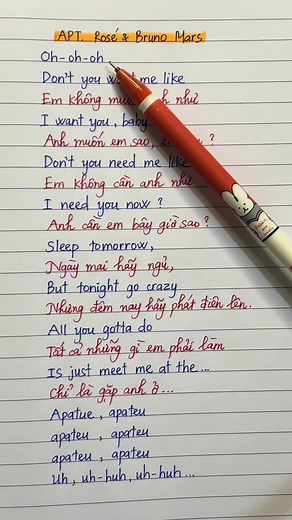 APT. Rosé & Bruno Mars
Oh-oh-oh
Don't you want me like
Em không muốn anh như
I want you, baby
Anh muốn em sao,
Don't you need me like
Em không cần anh như
I need you now ?
Anh cần em bây giờ sao ?
Sleep tomorrow,
Ngày mai hãy ngủ,
But tonight go crazy
Nhưng đêm nay hãy phát điên lên.
All you gotta do
Tất cả những gì em phải làm
Is just meet me at the...
Chỉ là gặp anh ở...
Apatue, apateu
apateu, apateu
apateu, apateu
Uh, uh-huh, uh-huh...